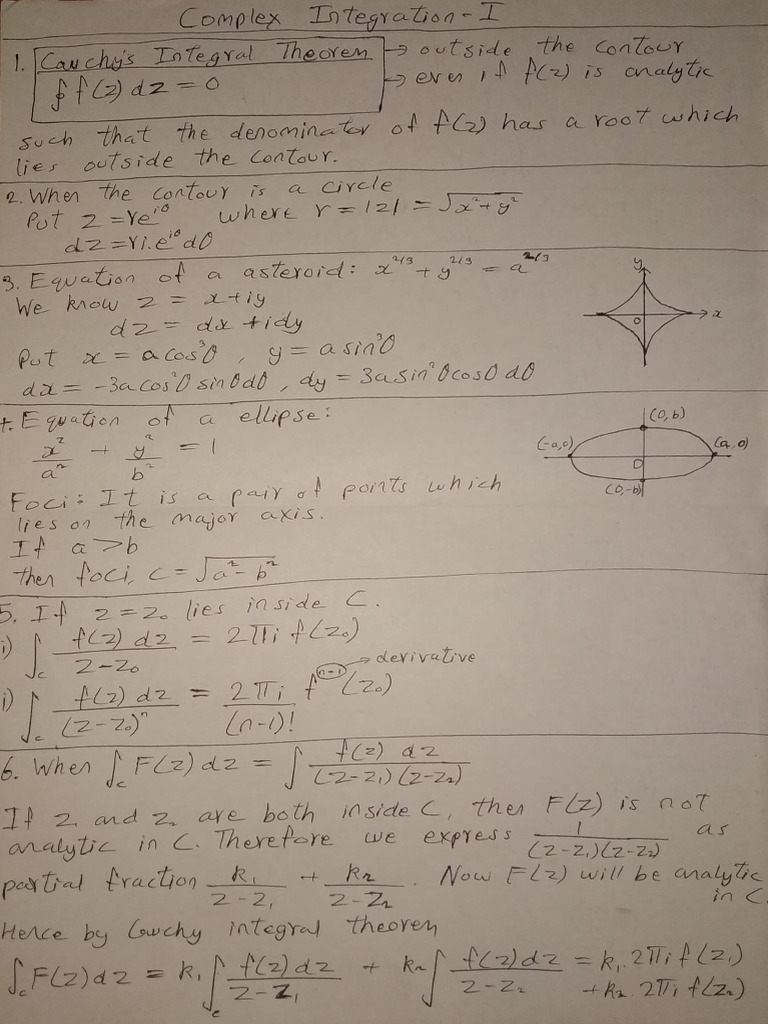 Complex Integration - I
1. Cauchy's Integral Theorem → outside the contour
∮ f(z) dz = 0 → even if f(z) is analytic
such that the denominator of f(z) has a root which
lies outside the contour.
2. When the contour is a circle
Put z = re^{iθ} where r = |z| = √(x² + y²)
dz = ri.e^{iθ} dθ
3. Equation of a asteroid: x^{2/3} + y^{2/3} = a^{2/3}
We know z = x + iy
dz = dx + idy
Put x = a cos³θ, y = a sin³θ
dx = -3a cos²θ sinθ dθ, dy = 3a sin²θ cosθ dθ
y
x
0
4. Equation of a ellipse:
x²/a² + y²/b² = 1
Foci: It is a pair of points which
lies on the major axis.
If a > b
then foci, c = √(a² - b²)
(0, b)
(-a,0) (a, 0)
0
(0,-b)
5. If z = z₀ lies inside C.
i) ∫_c f(z) dz / (z - z₀) = 2πi f(z₀)
i) ∫_c f(z) dz / (z - z₀)ⁿ = 2πi / (n-1)! f^{n-1} (z₀) → derivative
6. When ∫_c F(z) dz = ∫ f(z) dz / (z-z₁)(z-z₂)
If z₁ and z₂ are both inside C, then F(z) is not
analytic in C. Therefore we express 1 / (z-z₁)(z-z₂) as
partial fraction k₁ / (z-z₁) + k₂ / (z-z₂). Now F(z) will be analytic
in C.
Hence by Cauchy integral theorem
∫_c F(z) dz = k₁ ∫_c f(z) dz / (z-z₁) + k₂ ∫ f(z) dz / (z-z₂) = k₁. 2πi f(z₁)
+ k₂. 2πi f(z₂)